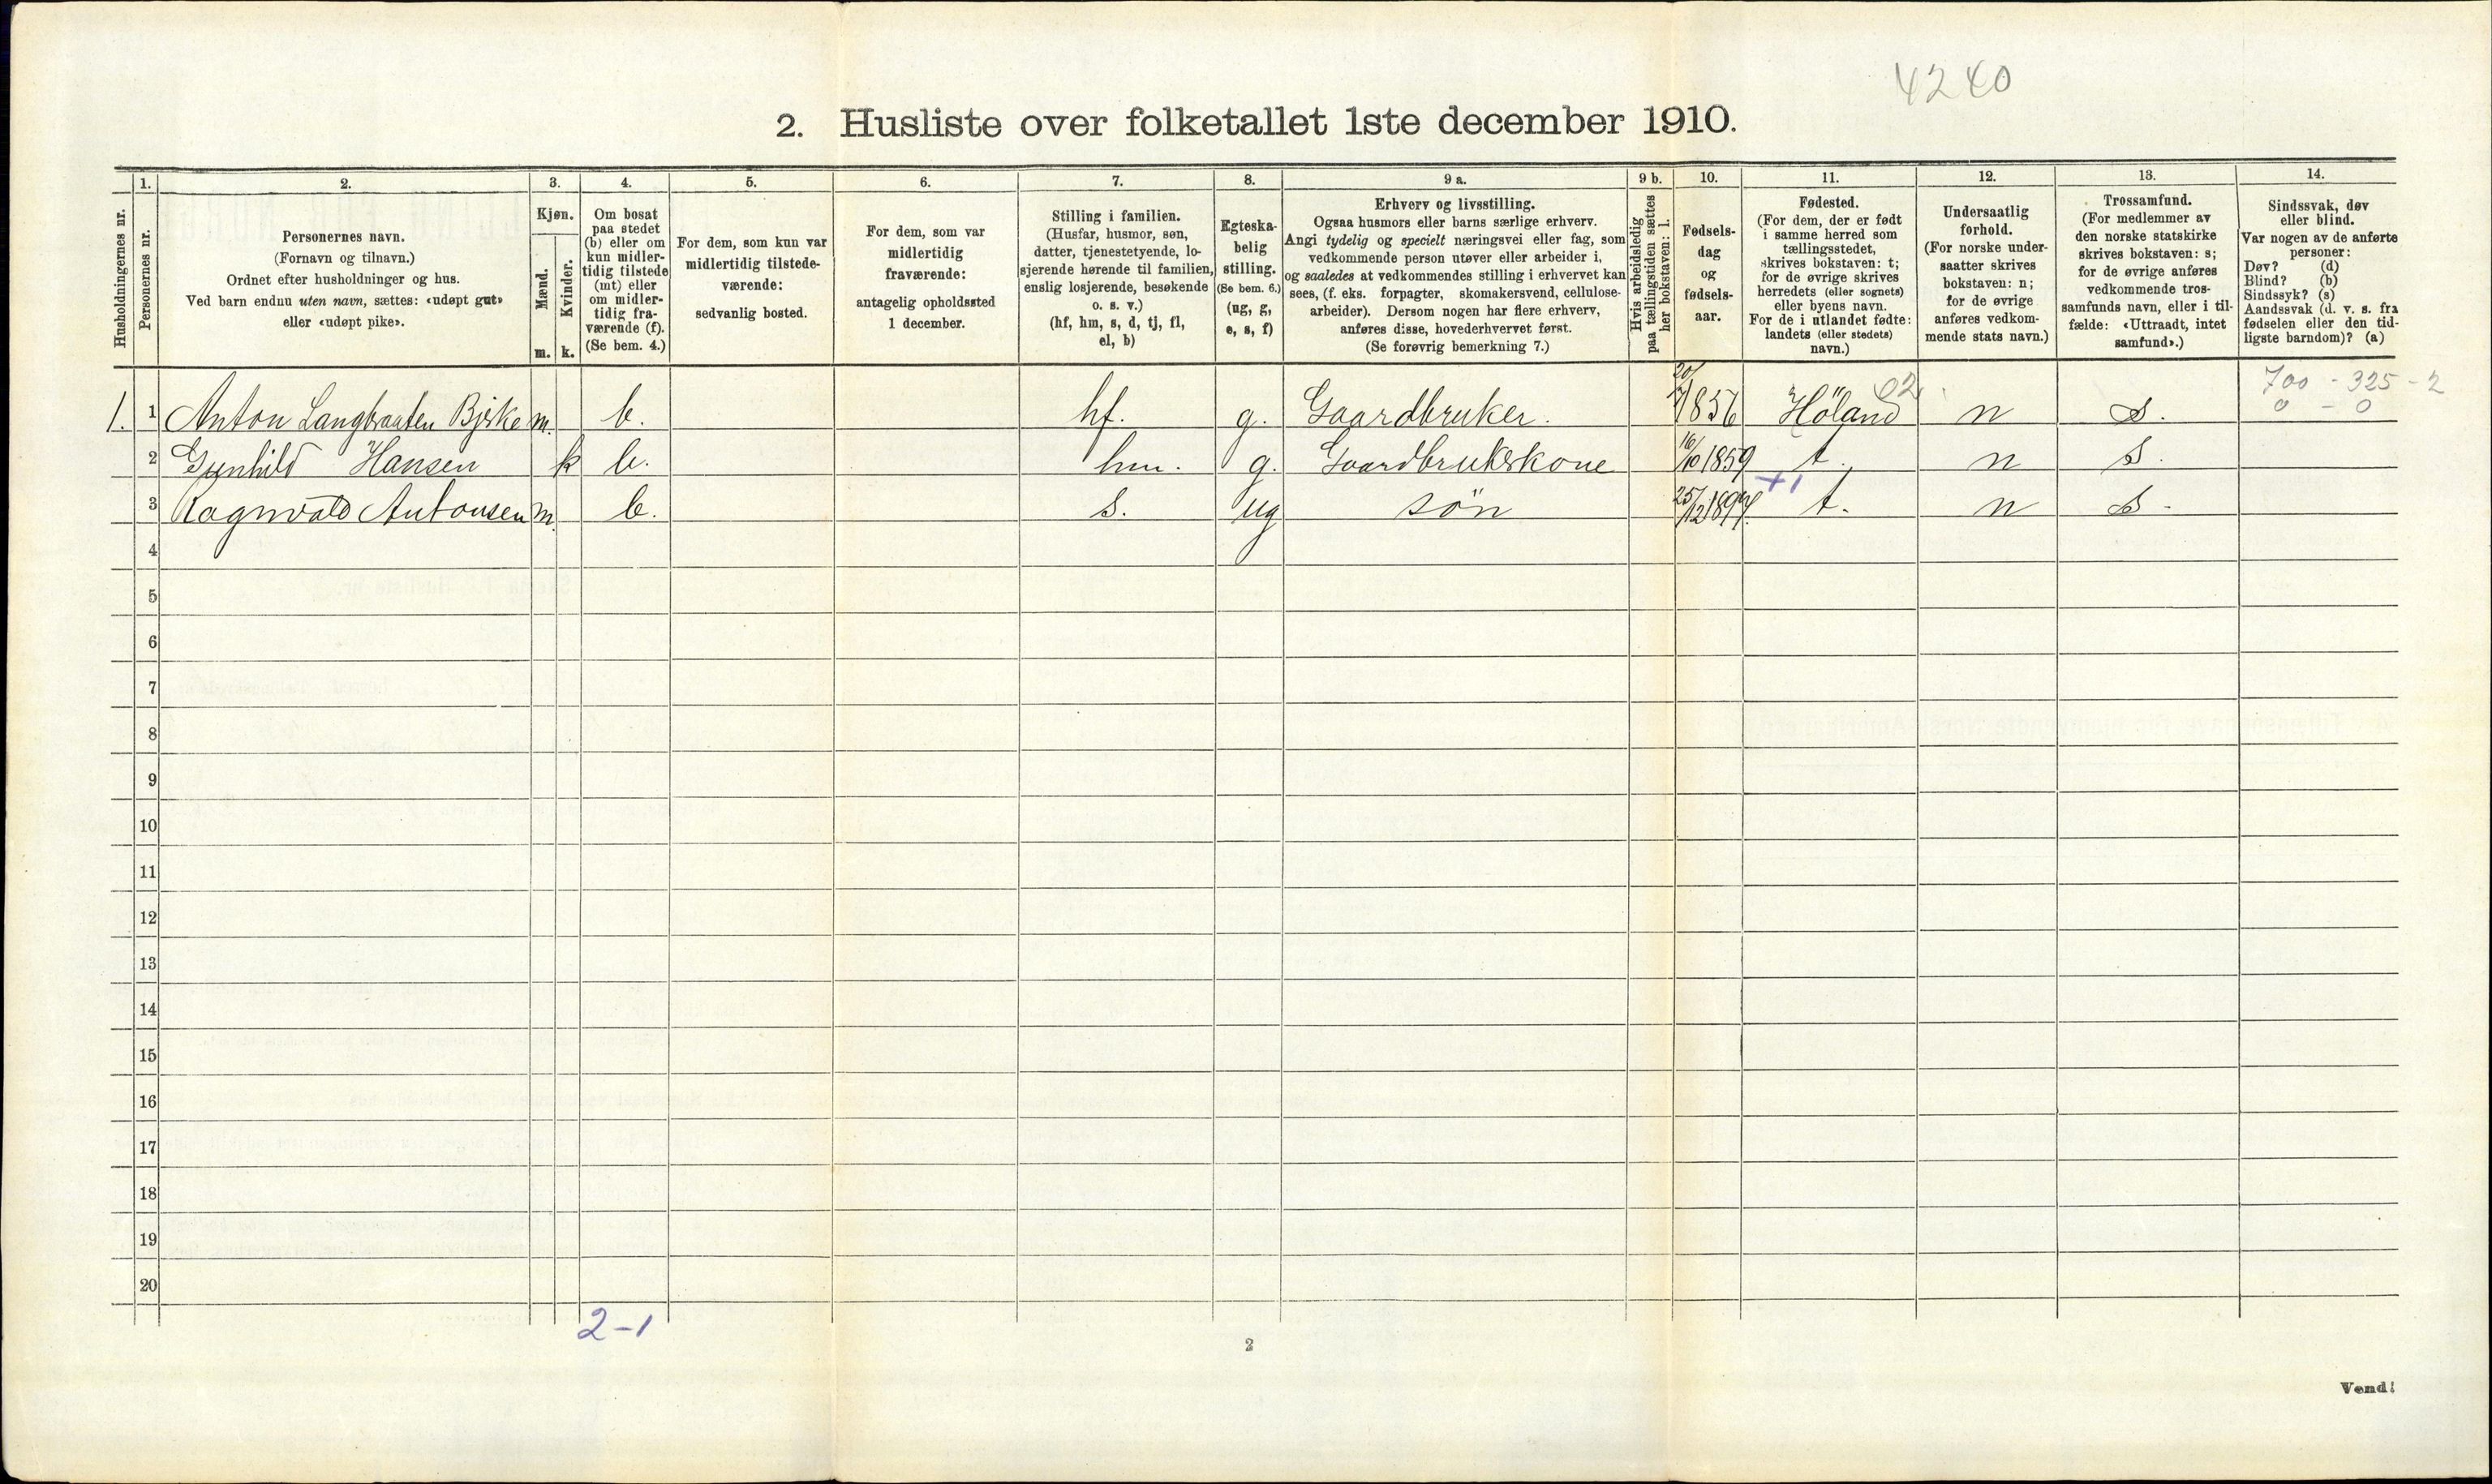 4240
2. Husliste over folketallet 1ste december 1910.
Husholdningernes nr.
1.
Personernes nr.
2.
Personernes navn.
(Fornavn og tilnavn.)
Ordnet efter husholdninger og hus.
Ved barn endnu uten navn, sættes: «udøpt gut»
eller «udøpt pike».
3.
Kjøn.
Mænd.
Kvinder.
m. k.
4.
Om bosat
paa stedet
(b) eller om
kun midler-
tidig tilstede
(mt) eller
om midler-
tidig fra-
værende (f).
(Se bem. 4.)
5.
For dem, som kun var
midlertidig tilstede-
værende:
sedvanlig bosted.
6.
For dem, som var
midlertidig
fraværende:
antagelig opholdssted
1 december.
7.
Stilling i familien.
(Husfar, husmor, søn,
datter, tjenestetyende, lo-
sjerende hørende til familien,
enslig losjerende, besøkende
o. s. v.)
(hf, hm, s, d, tj, fl,
el, b)
8.
Egteska-
belig
stilling.
(Se bem. 6.)
(ug, g,
e, s, f)
9 a.
Erhverv og livsstilling.
Ogsaa husmors eller barns særlige erhverv.
Angi tydelig og specielt næringsvei eller fag, som
vedkommende person utøver eller arbeider i,
og saaledes at vedkommendes stilling i erhvervet kan
sees, (f. eks. forpagter, skomakersvend, cellulose-
arbeider). Dersom nogen har flere erhverv,
anføres disse, hovederhvervet først.
(Se forøvrig bemerkning 7.)
9 b.
Hvis arbeidsledig
paa tællingstiden sættes
her bokstaven: l.
10.
Fødsels-
dag
og
fødsels-
aar.
11.
Fødested.
(For dem, der er født
i samme herred som
tællingsstedet,
skrives bokstaven: t;
for de øvrige skrives
herredets (eller sognets)
eller byens navn.
For de i utlandet fødte:
landets (eller stedets)
navn.)
12.
Undersaatlig
forhold.
(For norske under-
saatter skrives
bokstaven: n;
for de øvrige
anføres vedkom-
mende stats navn.)
13.
Trossamfund.
(For medlemmer av
den norske statskirke
skrives bokstaven: s;
for de øvrige anføres
vedkommende tros-
samfunds navn, eller i til-
fælde: «Uttraadt, intet
samfund».)
14.
Sindssvak, døv
eller blind.
Var nogen av de anførte
personer:
Døv? (d)
Blind? (b)
Sindssyk? (s)
Aandssvak (d. v. s. fra
fødselen eller den tid-
ligste barndom)? (a)
02 700 - 325 - 2
0 - 0
1. 1 Anton Langbraaten Bjerke m. b. hf. g. Gaardbruker. 20/7 1856 Høland n s.
2 Gunhild Hansen k b. hm. g. Gaardbrukskone 16/10 1859 t. n s.
+1
3 Ragnvald Antonsen m. b. s. ug søn 25/12 1894 t. n s.
4
5
6
7
8
9
10
11
12
13
14
15
16
17
18
19
20
2-1
2
Vend!